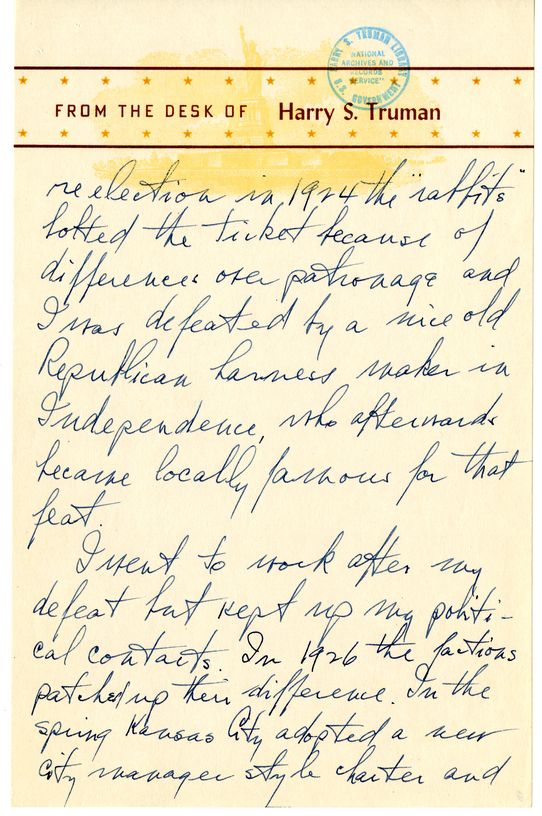 HARRY S. TRUMAN LIBRARY
"NATIONAL
ARCHIVES AND
RECORDS
SERVICE"
U.S. GOVERNMENT
FROM THE DESK OF Harry S. Truman
reelection in 1924 the "rabbits"
bolted the ticket because of
differences over patronage and
I was defeated by a nice old
Republican harness maker in
Independence, who afterwards
became locally famous for that
feat.
I went to work after my
defeat but kept up my politi-
cal contacts. In 1926 the factions
patched up their difference. In the
spring Kansas City adopted a new
city manager style charter and